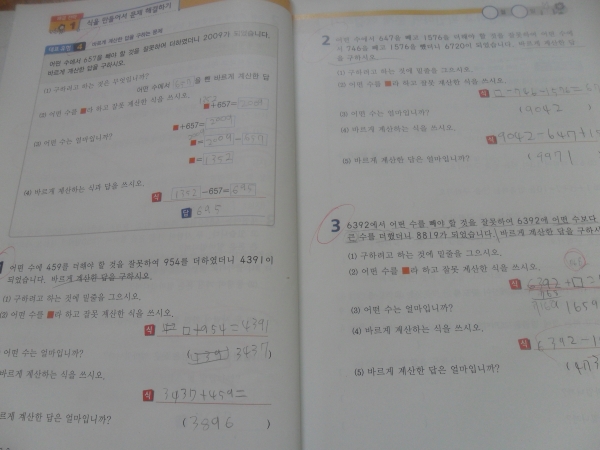 식을 만들어서 문제 해결하기
대표 유형 4 바르게 계산한 답을 구하는 문제
어떤 수에서 657을 빼야 할 것을 잘못하여 더하였더니 2009가 되었습니다.
바르게 계산한 답을 구하시오.
(1) 구하려고 하는 것은 무엇입니까?
어떤 수에서 을 뺀 바르게 계산한 답
(2) 어떤 수를 ■라 하고 잘못 계산한 식을 쓰시오.
■+657=2009
(3) 어떤 수는 얼마입니까?
■+657=2009
■=2009-657
■=1352
(4) 바르게 계산하는 식과 답을 쓰시오.
식 1352-657=695
답 695
1 어떤 수에 459를 더해야 할 것을 잘못하여 954를 더하였더니 4391이
되었습니다. 바르게 계산한 답을 구하시오.
(1) 구하려고 하는 것에 밑줄을 그으시오.
(2) 어떤 수를 ■라 하고 잘못 계산한 식을 쓰시오.
식 □+954=4391
어떤 수는 얼마입니까?
3437)
바르게 계산하는 식을 쓰시오.
식 3437+459=
바르게 계산한 답은 얼마입니까?
(3896)
2 어떤 수에서 647을 빼고 1576을 더해야 할 것을 잘못하여 어떤 수에
서 746을 빼고 1576을 뺐더니 6720이 되었습니다. 바르게 계산한 답
을 구하시오.
(1) 구하려고 하는 것에 밑줄을 그으시오.
(2) 어떤 수를 ■라 하고 잘못 계산한 식을 쓰시오.
식 □-746-1576=67
(3) 어떤 수는 얼마입니까?
(9042)
(4) 바르게 계산하는 식을 쓰시오.
식 9042-647+15
(5) 바르게 계산한 답은 얼마입니까?
(9971
3 6392에서 어떤 수를 빼야 할 것을 잘못하여 6392에 어떤 수보다
큰 수를 더했더니 8819가 되었습니다. 바르게 계산한 답을 구하시
(1) 구하려고 하는 것에 밑줄을 그으시오.
(2) 어떤 수를 ■라 하고 잘못 계산한 식을 쓰시오.
식 6392+□=
(3) 어떤 수는 얼마입니까?
1659
(4) 바르게 계산하는 식을 쓰시오.
식 6392-1
(5) 바르게 계산한 답은 얼마입니까?
(4733